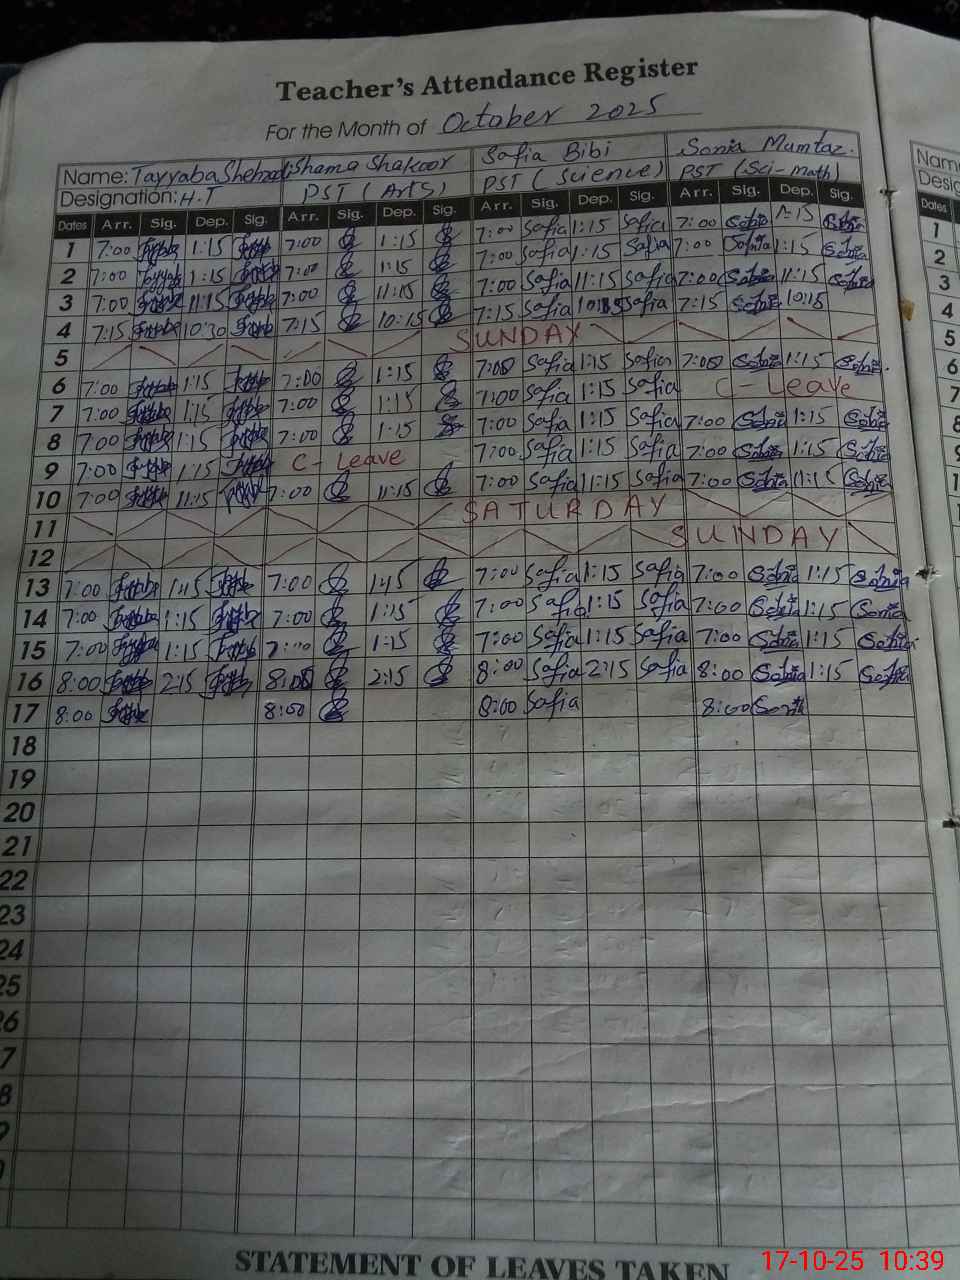 Teacher's Attendance Register
For the Month of October 2025
Name: Tayyaba Shehzadi Shama Shakoor Safia Bibi Sonia Mumtaz.
Designation: H.T PST (Arts) PST (Science) PST (Sci-math)
Dates Arr. Sig. Dep. Sig. Arr. Sig. Dep. Sig. Arr. Sig. Dep. Sig. Arr. Sig. Dep. Sig.
1 7:00 1:15 7:00 1:15 7:00 Safia 1:15 Safia 7:00 Sonia 1:15 Sonia
2 7:00 1:15 7:00 1:15 7:00 Safia 1:15 Safia 7:00 Sonia 1:15 Sonia
3 7:00 11:15 7:00 11:15 7:00 Safia 11:15 Safia 7:00 Sonia 11:15 Sonia
4 7:15 10:30 7:15 10:15 7:15 Safia 10:15 Safia 7:15 Sonia 10:15
5 SUNDAY
6 7:00 1:15 7:00 1:15 7:00 Safia 1:15 Safia 7:00 Sonia 1:15 Sonia
7 7:00 1:15 7:00 1:15 7:00 Safia 1:15 Safia C-Leave
8 7:00 1:15 7:00 1:15 7:00 Safia 1:15 Safia 7:00 Sonia 1:15 Sonia
9 7:00 1:15 C-Leave 7:00 Safia 1:15 Safia 7:00 Sonia 1:15 Sonia
10 7:00 11:15 7:00 11:15 7:00 Safia 11:15 Safia 7:00 Sonia 11:15 Sonia
11 SATURDAY
12 SUNDAY
13 7:00 1:15 7:00 1:15 7:00 Safia 1:15 Safia 7:00 Sonia 1:15 Sonia
14 7:00 1:15 7:00 1:15 7:00 Safia 1:15 Safia 7:00 Sonia 1:15 Sonia
15 7:00 1:15 7:00 1:15 7:00 Safia 1:15 Safia 7:00 Sonia 1:15 Sonia
16 8:00 2:15 8:00 2:15 8:00 Safia 2:15 Safia 8:00 Sonia 1:15 Sonia
17 8:00 8:00 8:00 Safia 8:00 Sonia
18
19
20
21
22
23
24
25
26
7
8
9
0
STATEMENT OF LEAVES TAKEN
Name
Desig
Dates
1
2
3
4
5
6
7
8
9
17-10-25 10:39